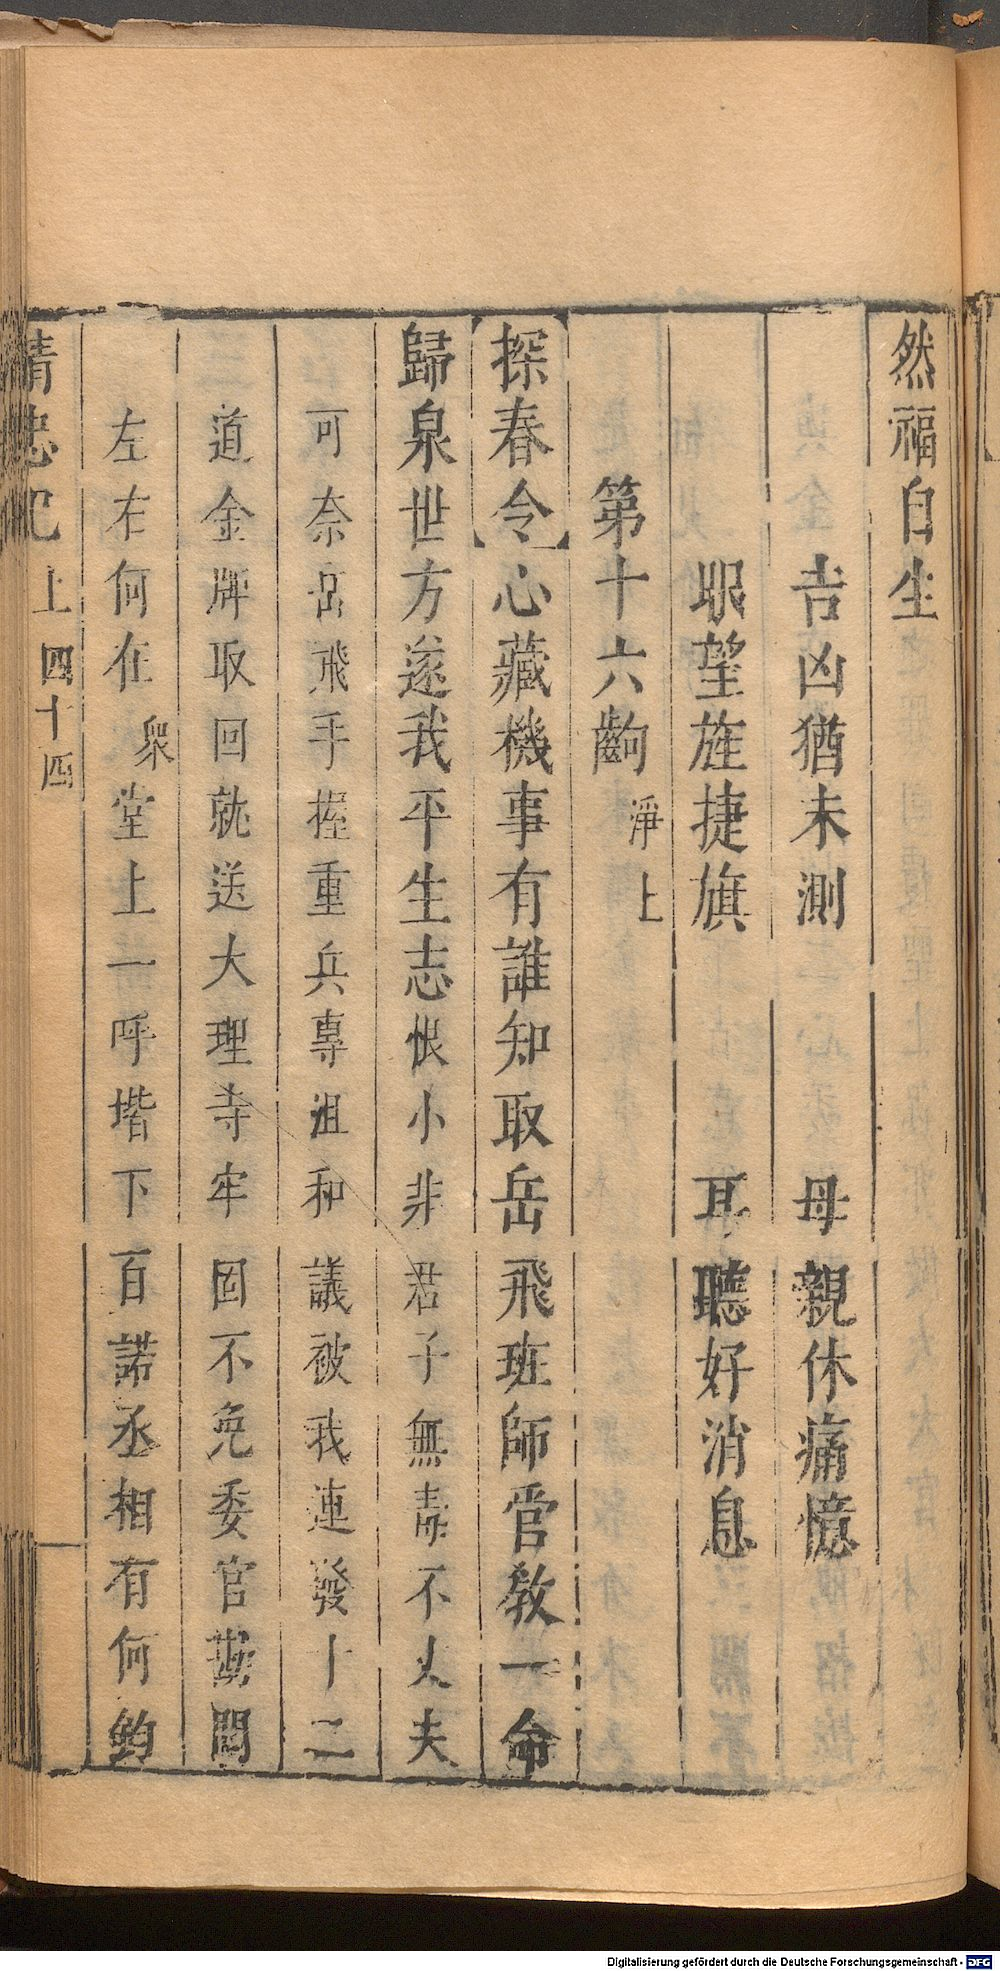 然福自生
吉凶猶未測 母親休痛憶
眼望旌捷旗 耳聽好消息
第十六齣 淨上
【探春令】心藏機事有誰知取岳飛班師當教一命
歸泉世方遂我平生志恨小非君子無毒不丈夫
可奈岳飛手握重兵專沮和議被我連發十二
道金牌取回就送大理寺牢固不免委官勘問
左右何在 衆 堂上一呼堦下百諾丞相有何鈞
精忠記 上 四十四
Digitalisierung gefördert durch die Deutsche Forschungsgemeinschaft - DFG